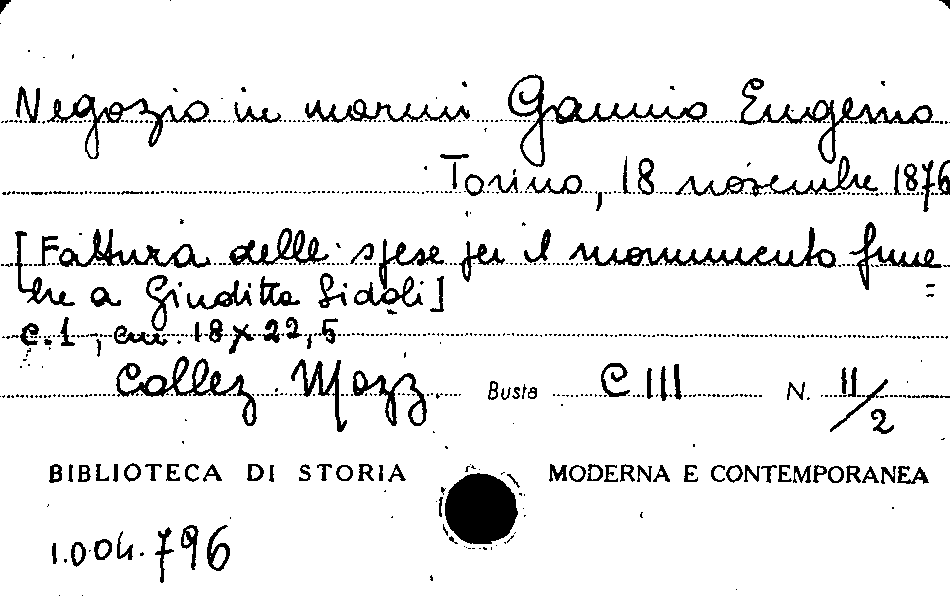 Negozio in marmi Gaunio Eugenio
Torino, 18 novembre 1876
[Fattura delle spese per il monumento fune=
bre a Giuditta Sidoli]
c. 1, cm. 18x22,5
Collez. Mazz. Busta C III N. 11/2
BIBLIOTECA DI STORIA MODERNA E CONTEMPORANEA
1.004.796